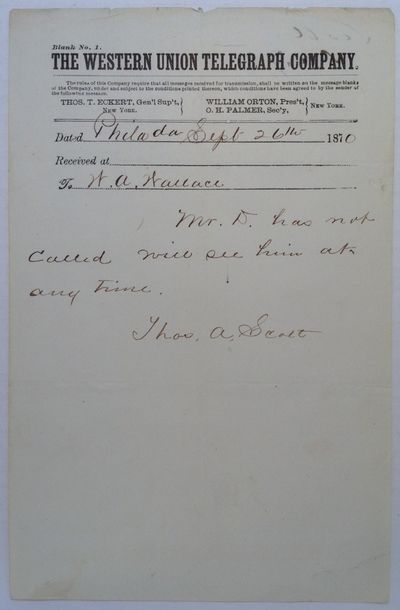 Blank No. 1.
THE WESTERN UNION TELEGRAPH COMPANY.
The rules of this Company require that all messages received for transmission, shall be written on the message blanks
of the Company, under and subject to the conditions printed thereon, which conditions have been agreed to by the sender of
the following message.
THOS. T. ECKERT, Gen'l Sup't, NEW YORK. WILLIAM ORTON, Pres't, O. H. PALMER, Sec'y, NEW YORK.
Dated Philada Sept 26th 1870
Received at
To W. A. Wallace
Mr. D. has not
Called will see him at
any time.
Thos. A. Scott